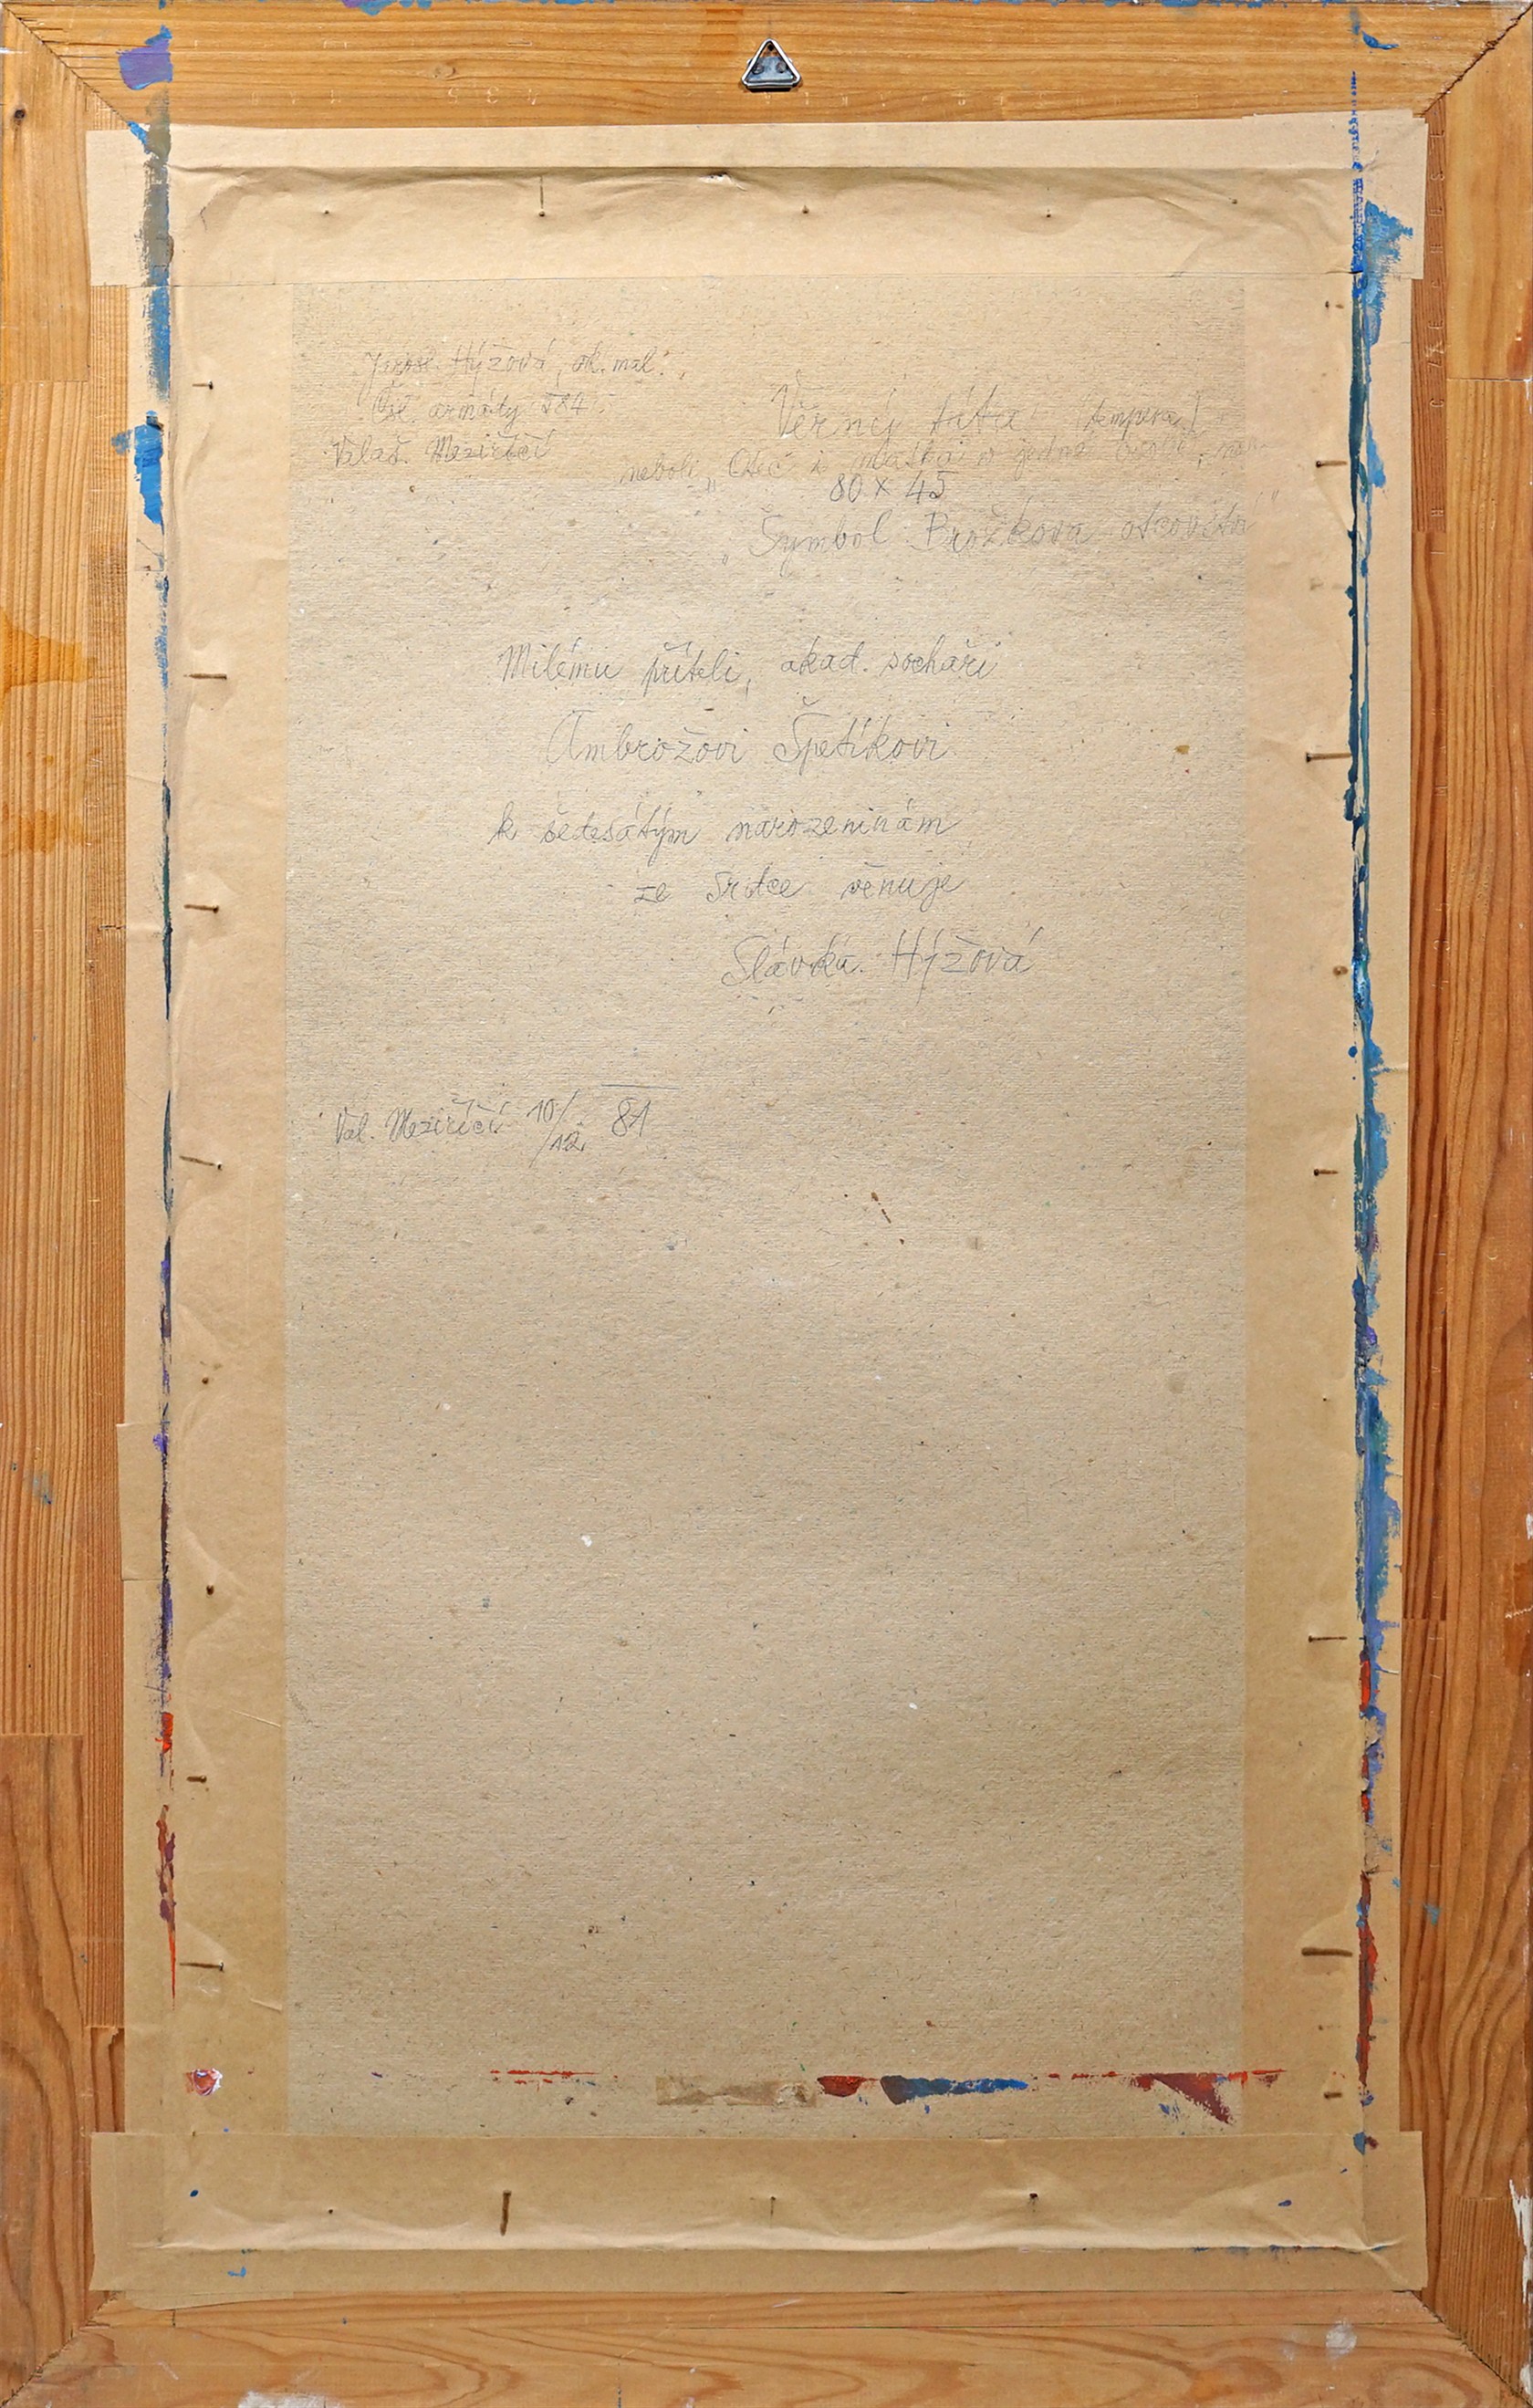 Jarosl. Hýžová, ak. mal.,
Čsl. armády 584
Valaš. Meziříčí
Věrný táta (tempera)
neboli „Otec i matka v jedné osobě,
80 x 45
„Symbol Brožkova otcovství"
Milému příteli, akad. sochaři
Ambrožovi Špetíkovi
k šedesátým narozeninám
ze srdce věnuje
Slávka Hýžová
Val. Meziříčí 10/12. 81